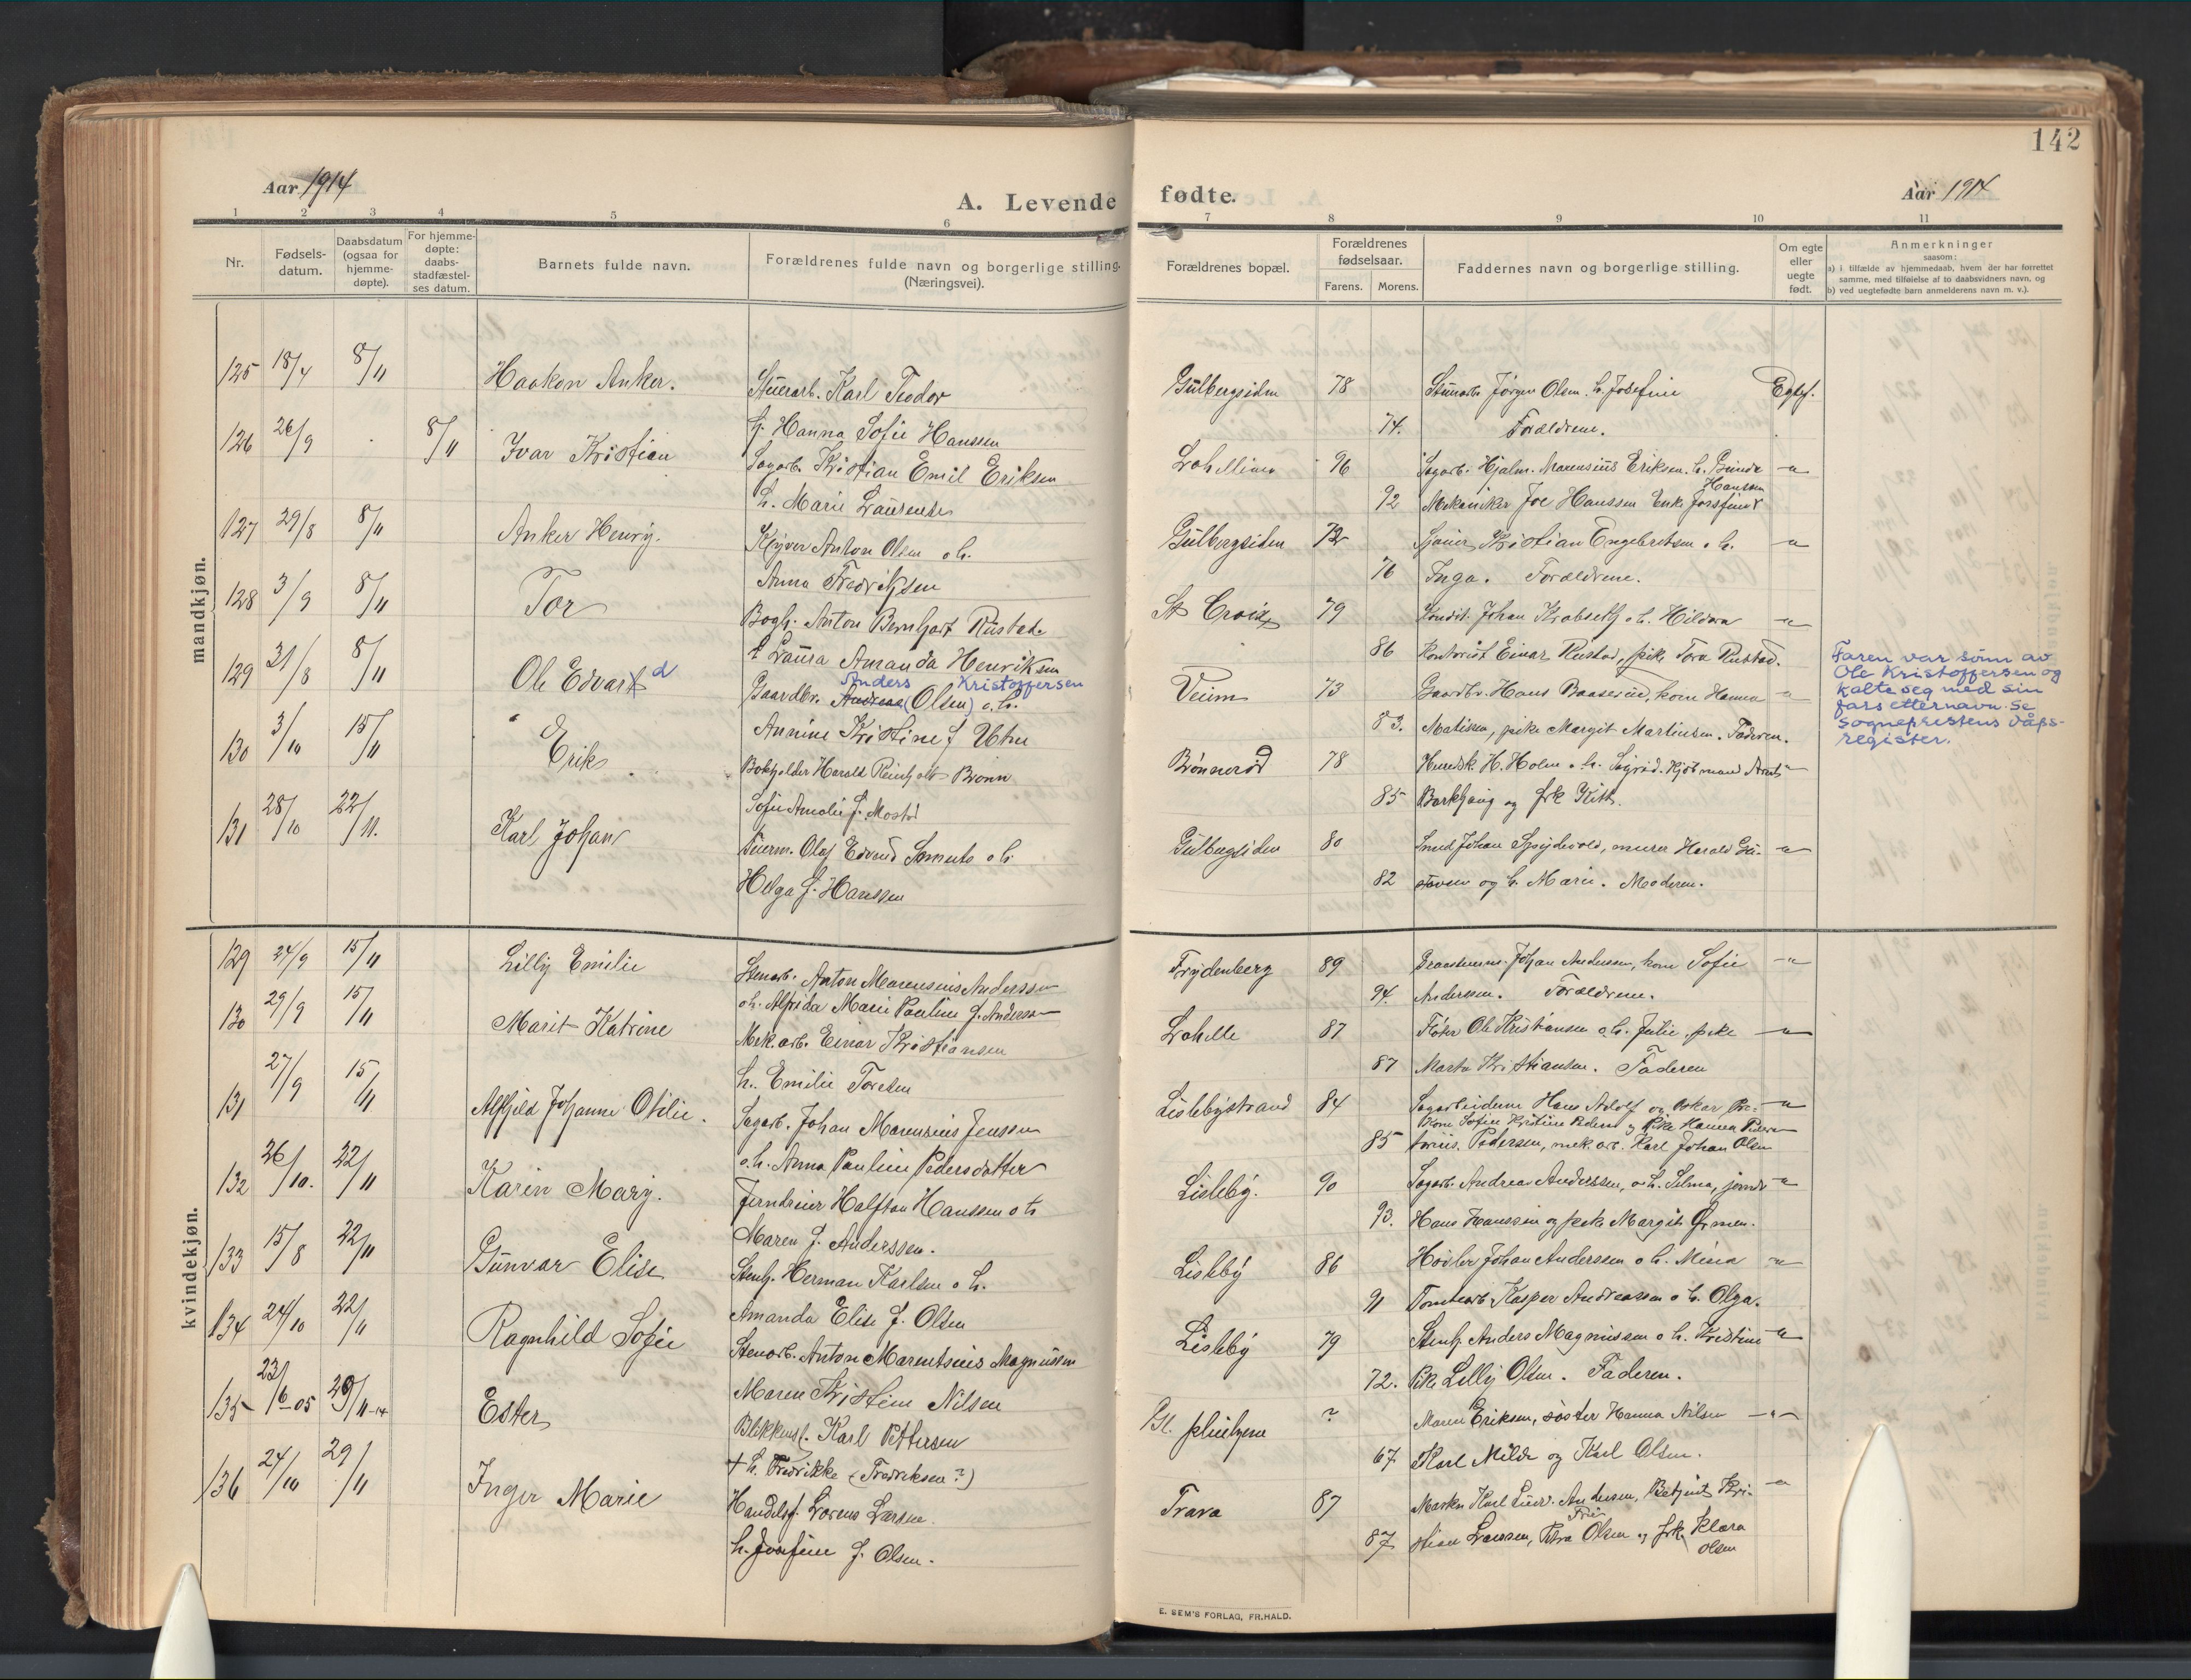 142
Aar 1914
A. Levende fødte.
Aar 1914
1 2 3 4 5 6 7 8 9 10 11
Nr.
Fødsels-
datum.
Daabsdatum
(ogsaa for
hjemme-
døpte).
For hjemme-
døpte:
daabs-
stadfæstel-
ses datum.
Barnets fulde navn.
Forældrenes fulde navn og borgerlige stilling.
(Næringsvei).
Forældrenes bopæl.
Forældrenes
fødselsaar.
Farens. Morens.
Faddernes navn og borgerlige stilling.
Om egte
eller
uegte
født.
Anmerkninger
saasom:
a) i tilfælde av hjemmedaab, hvem der har forrettet
samme, med tilføielse af to daabsvidners navn, og
b) ved uegtefødte barn anmelderens navn m. v.).
mandkjøn.
125 18/4 8/11 Haakon Anker. Stuerarb. Karl Teodor Gulbergsiden 78 Jørgen Olsen. h. Josefine Egtef.
H. Hanna Sofie Hanssen 74. Forældrene.
126 26/9 8/11 Ivar Kristian Sagarb. Kristian Emil Eriksen 96 Sagarb. Hjalm. Marensius Eriksen. h. Gunda -"-
Hansen
h. Marie Laurentse 92 Mekaniker Joe Hanssen Enke
127 29/8 8/11 Anker Henry. Anton Olsen o h. Gulbergsiden 72 Kristian Engebretsen o h. -"-
Anna Fredriksen 76 Inga. Forældrene.
128 3/9 8/11 Tor Bogh. Anton Bernhart Rustad St Croix 79 Kondit. Johan Krabseth o h. Hildora -"-
f Laura Amanda Henriksen 86 Kontorist Einar Rustad, pike Tora Rustad.
129 31/8 8/11 Ole Edvart d Gaardbr. Andreas (Olsen) o. h. Veum 73 Gaardbr. Hans Baaserud, kone Hanna -"-
Anders Kristoffersen
Annine Kristine f Utne 83. Matisen, pike Margit Martinsen. Faderen.
Faren var sønn av
Ole Kristoffersen og
kalte seg med sin
fars etternavn. Se
sogneprestens dåps-
register.
130 3/10 15/11 Erik Bokholder Harald Reinholt Bronn Brønnerød 78 H. Holm o h. Sigrid. Kjøbmand
Sofie Amalie f. Mostad 85 Barkhaug og frk Kitt.
131 28/10 22/11. Karl Johan Olaf Edvard o h. Gulbergsiden 80 Smed Johan Spydevold, murer Harald Gu- -"-
Helga f. Hanssen 82 staven og h. Marie. Moderen.
kvindekjøn.
129 24/9 15/11 Lilly Emilie Stenarb. Anton Marensius Anderssen Frydenberg 89 Johan Andersen, kone Sofie -"-
o h. Alfrida Marie Pauline f. Anderssen 94. Anderssen. Forældrene.
130 29/9 15/11 Marit Katrine Mek. arb. Einar Kristiansen Lahelle 87 Fløter Ole Kristiansen o h. Julie. pike -"-
h. Emilie Toresen 87 Marta Kristiansen. Faderen
131 27/9 15/11 Alfhild Johanne Otilie. Sagarb. Johan Marensius Jenssen Lislebystrand 84 Sagarbeiderne Hans Adolf og Oskar Pre- -"-
Kone Sofie Kristine Pedersen og Pike Hanna Pedersen
o. h. Anna Pauline Pedersdatter 85 torius. Pedersen, mek. arb. Karl Johan Olsen
132 26/10. 22/11 Karin Mary. Jerndreier Halfton Hanssen o h Lisleby. 90 Sagarb. Andreas Anderssen, o h. Selma, jernd -"-
Maren f. Anderssen. 93. Hans Hanssen og pike Margit Ørmen.
133 15/8 22/11 Gunvar Elise Stenh. Herman Karlsen o h. Lisleby 86 Høvler Johan Anderssen o h. Mina -"-
Amanda Elise f. Olsen 91 Tomtearb. Kasper Andreassen o h. Olga.
134 24/10 22/11 Ragnhild Sofie Stenarb. Anton Marentsius Magnussen Lisleby 79 Stenh. Anders Magnussen o h. Kristine -"-
Maren Kristine Nilsen 72. Pike Lilly Olsen. Faderen.
135 23/6-05 29/11-14 Ester Blikkensl. Karl Pettersen Gl. pleiehjem ? Maren Eriksen, søster Hanna Nilsen -"-
+ h. Fredrikke (Fredriksen?) 67 Karl Milde og Karl Olsen.
136 24/10 29/11 Inger Marie Handelsf. Lorens Larsen Trara 87 Andersen, Betjent Kri- -"-
h. Josefine f. Olsen. 87 stian Larssen, Olsen og frk. Klara
Olsen
E. SEM'S FORLAG, FR.HALD.